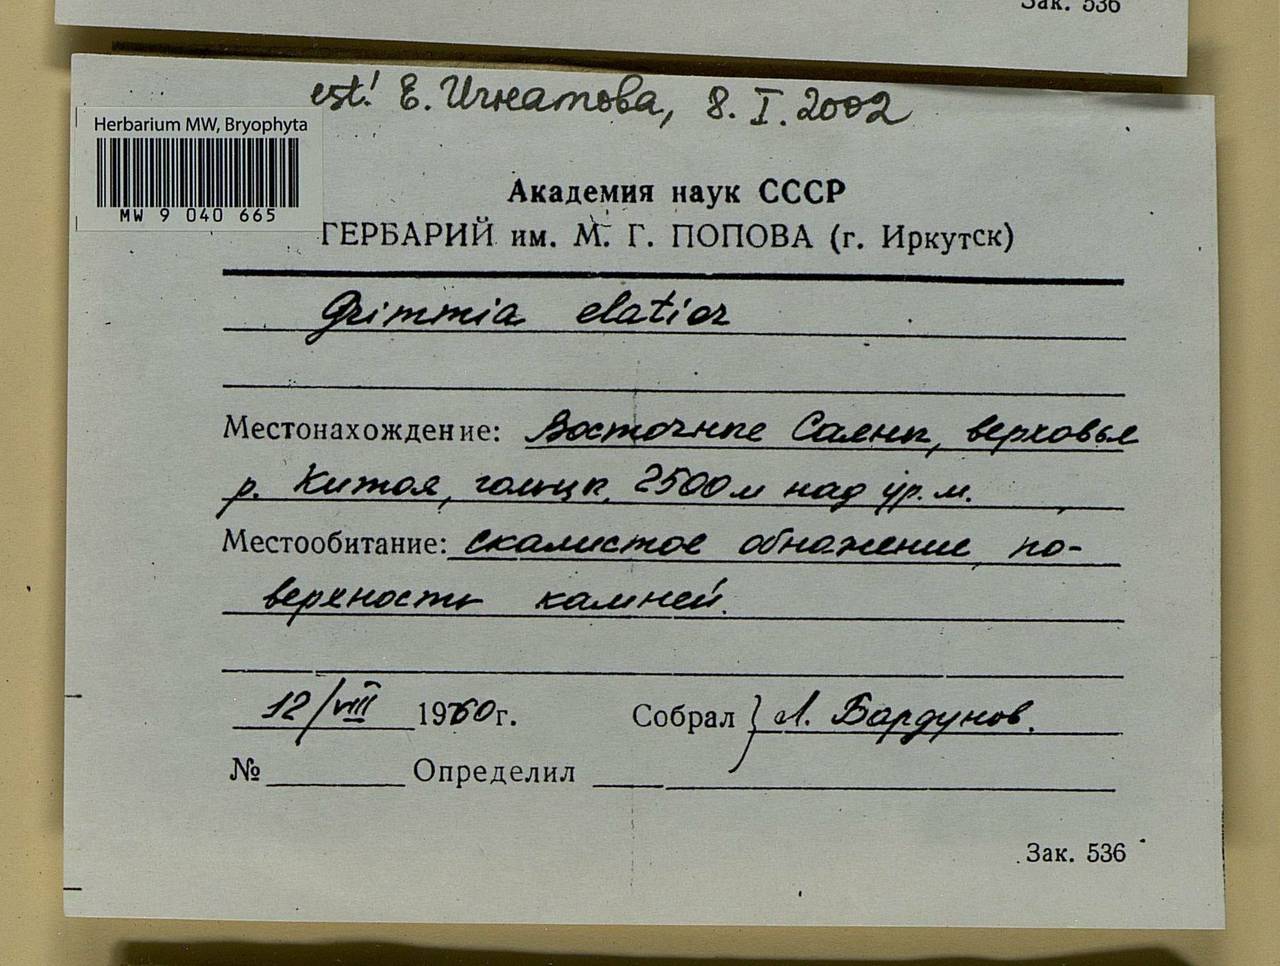 Зак. 536
est! Е. Игнатова, 8. I. 2002
Herbarium MW, Bryophyta
MW 9 040 665
Академия наук СССР
ГЕРБАРИЙ им. М. Г. ПОПОВА (г. Иркутск)
Grimmia elatior
Местонахождение: Восточные Саяны, верховье
р. Китоя, гольцы, 2500 м над ур. м.
Местообитание: скалистое обнажение, по-
верхность камней.
12/VIII 1960г. Собрал } Л. Бардунов.
№ Определил
Зак. 536